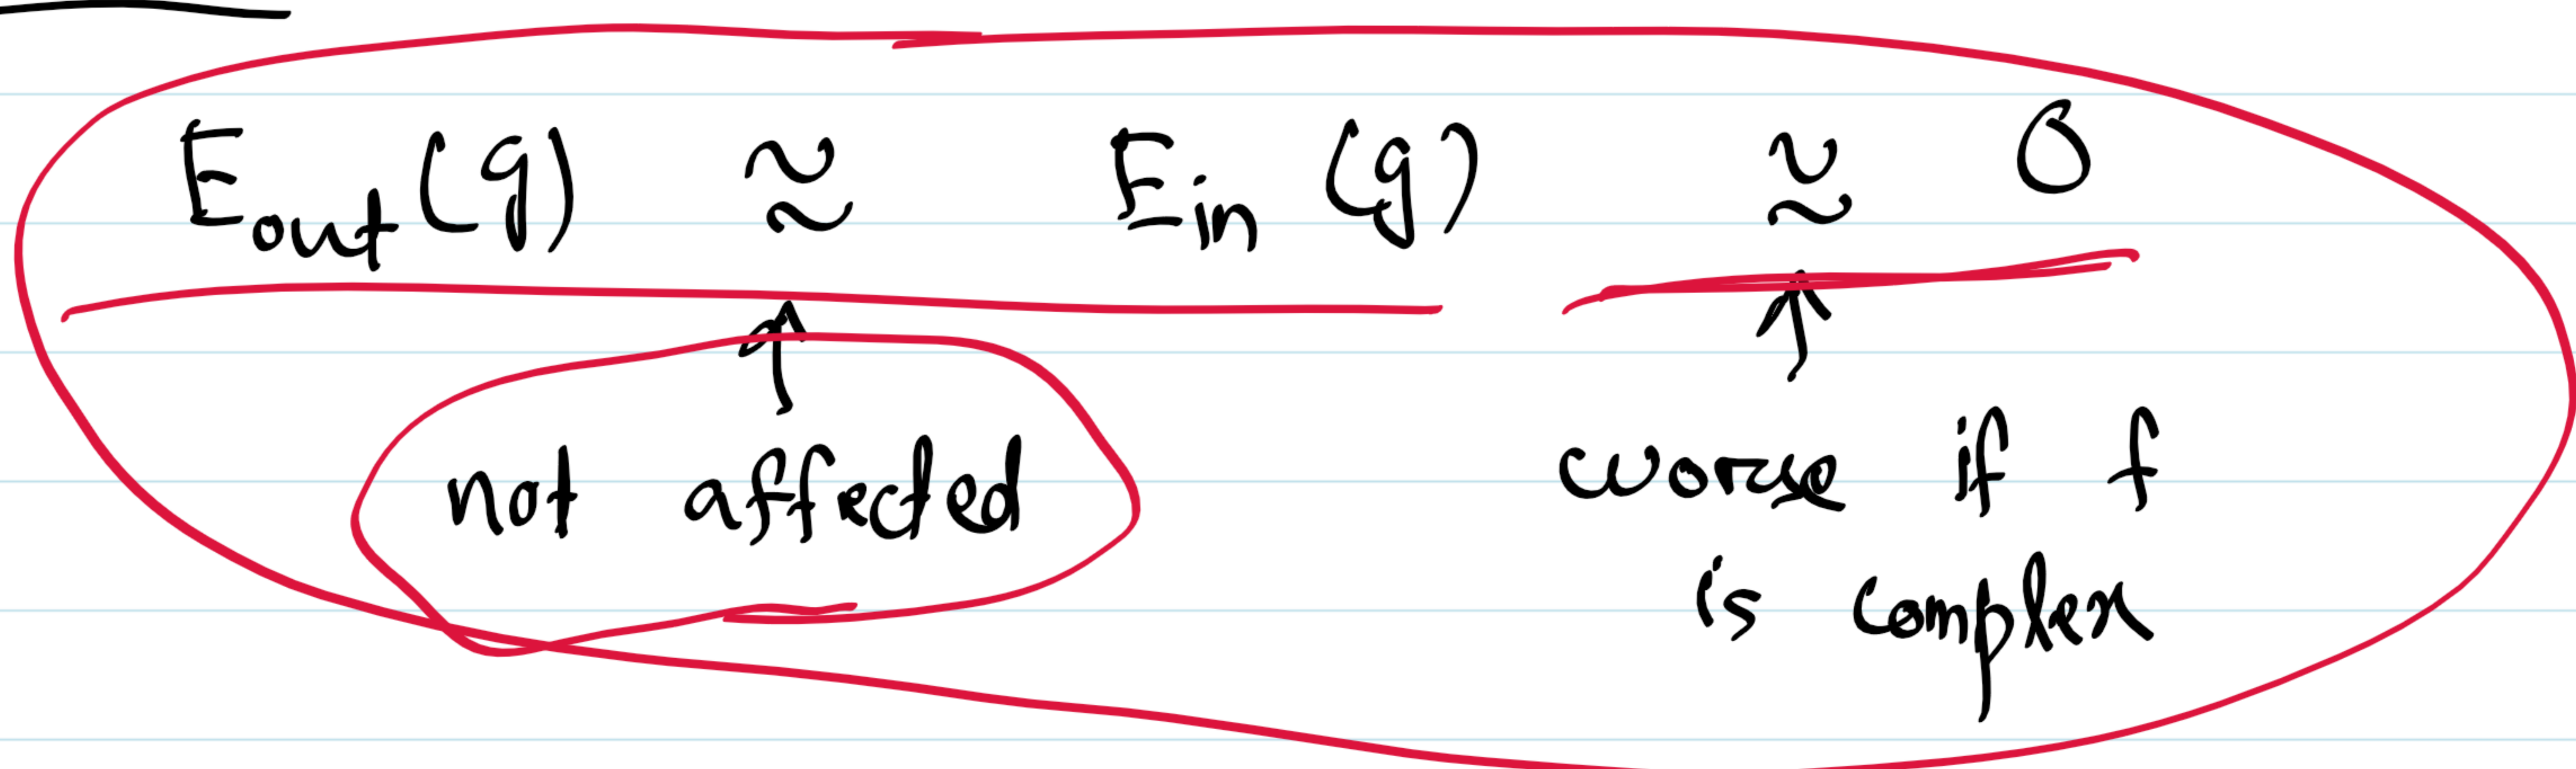 E_out(g) ≈ E_in(g) ≈ 0
↑ ↑
not affected worse if f
is complex